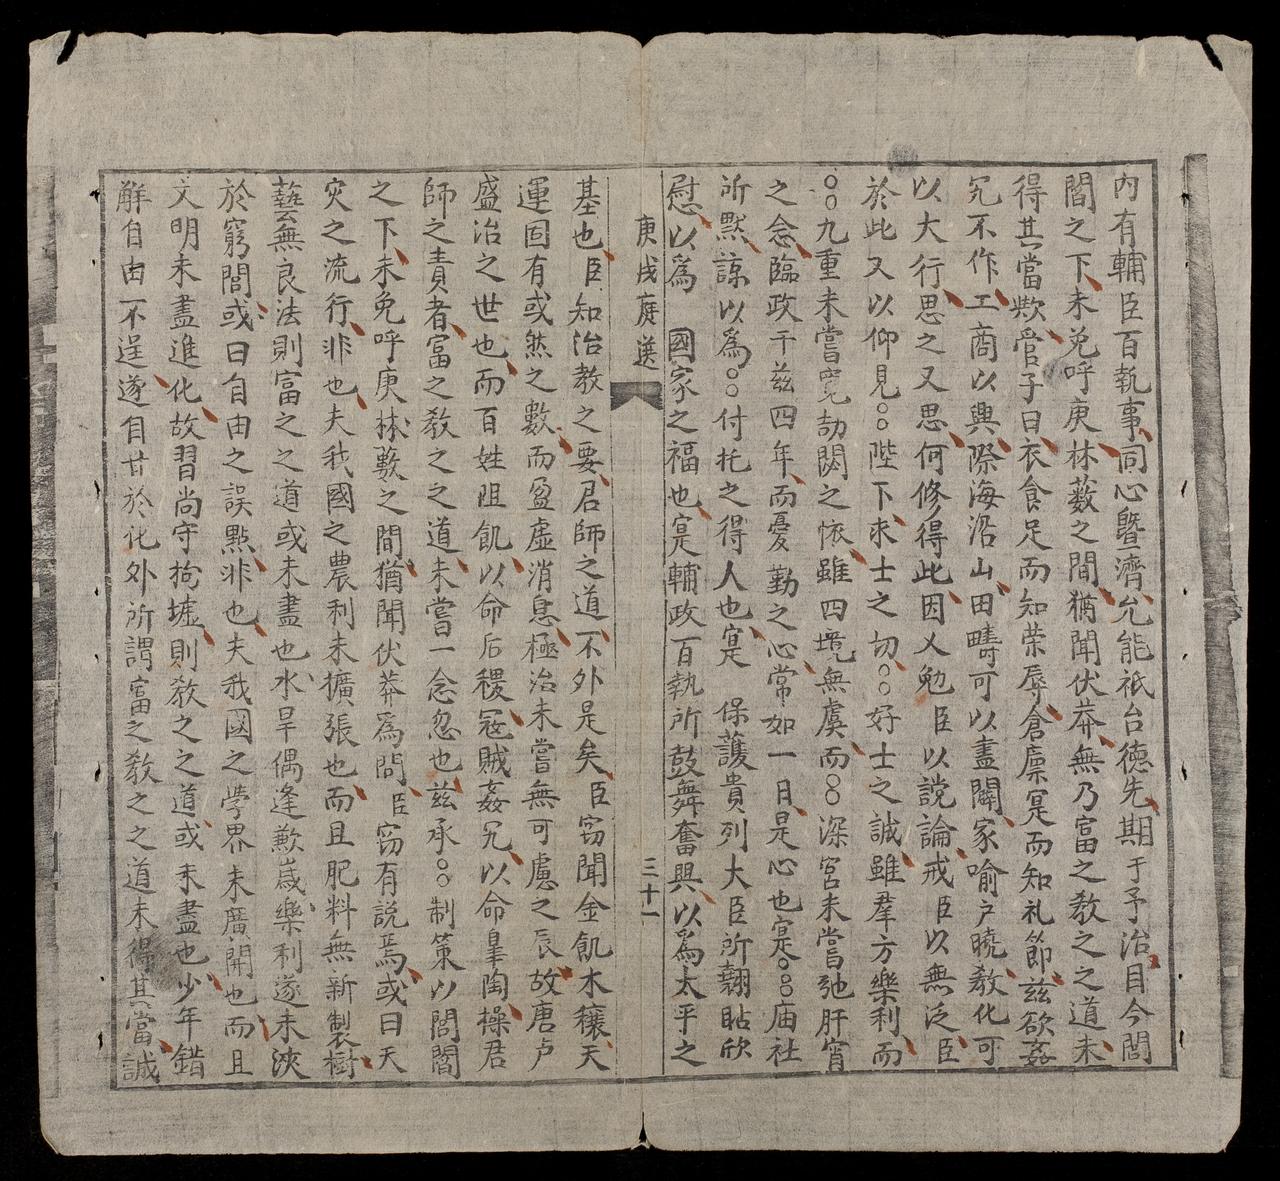 內有輔臣百執事同心曁濟允能祇台德先期于予治目今閭
閻之下未免呼庚林薮之間猶聞伏莽無乃富之教之之道未
得其當歟管子曰衣食足而知荣辱倉廪寔而知礼節兹欲姦
宄不作工商以興際海沿山田疇可以盡闢家喻户曉教化可
以大行思之又思何修得此因乂勉臣以說論戒臣以無泛臣
於此又以仰見○○陛下求士之切○○好士之誠雖羣方樂利而
○○九重未嘗寬劼閟之懷雖四境無虞而○○深宮未嘗弛旰宵
之念臨政于兹四年而憂勤之心常如一日是心也寔○○庙社
所黙諒以爲○○付托之得人也寔 保護貴列大臣所翹跕欣
慰以爲 國家之福也寔輔政百執所鼓舞奮興以爲太平之
庚戌庭選 三十一
基也臣知治教之要君師之道不外是矣臣窃聞金飢木穰天
運固有或然之數而盈虚消息極治未嘗無可慮之辰故唐卢
盛治之世也而百姓阻飢以命后稷寇賊姦宄以命皐陶操君
師之責者富之教之之道未嘗一念忽也兹承○○制策以閭閻
之下未免呼庚林藪之間猶聞伏莽爲問臣窃有說焉或曰天
灾之流行非也夫我國之農利未擴張也而且肥料無新製樹
藝無良法則富之之道或未盡也水旱偶逢歉嵗樂利遂未浹
於窮閻或曰自由之誤㸃非也夫我國之學界未廣開也而且
文明未盡進化故習尚守拘墟則教之之道或未盡也少年錯
解自由不逞遂自甘於化外所謂富之教之之道未得其當誠